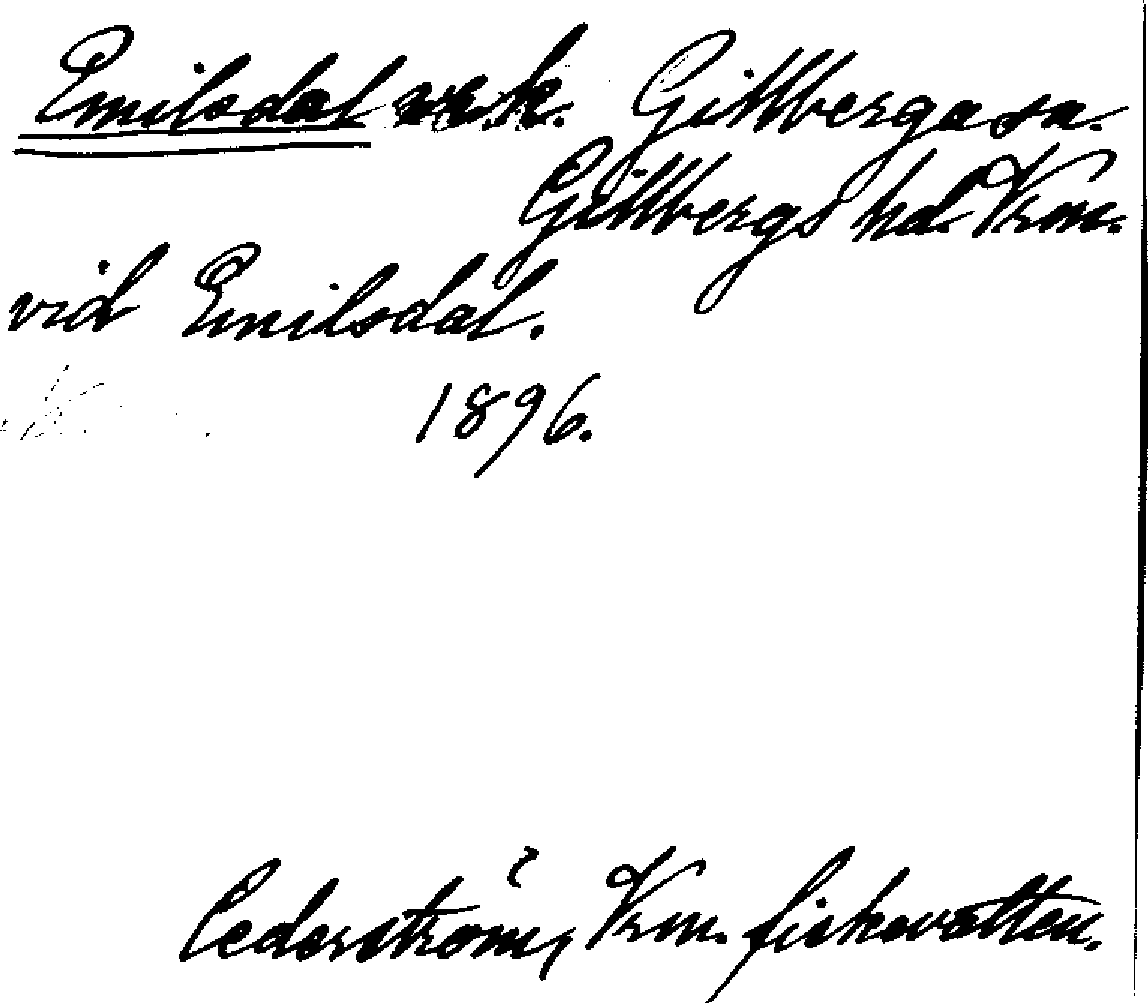 Emilsdal Gillberga sn.
Gillbergs hd. Vrm.
vid Emilsdal.
1896.
Cederström, Vrm. fiskevatten.